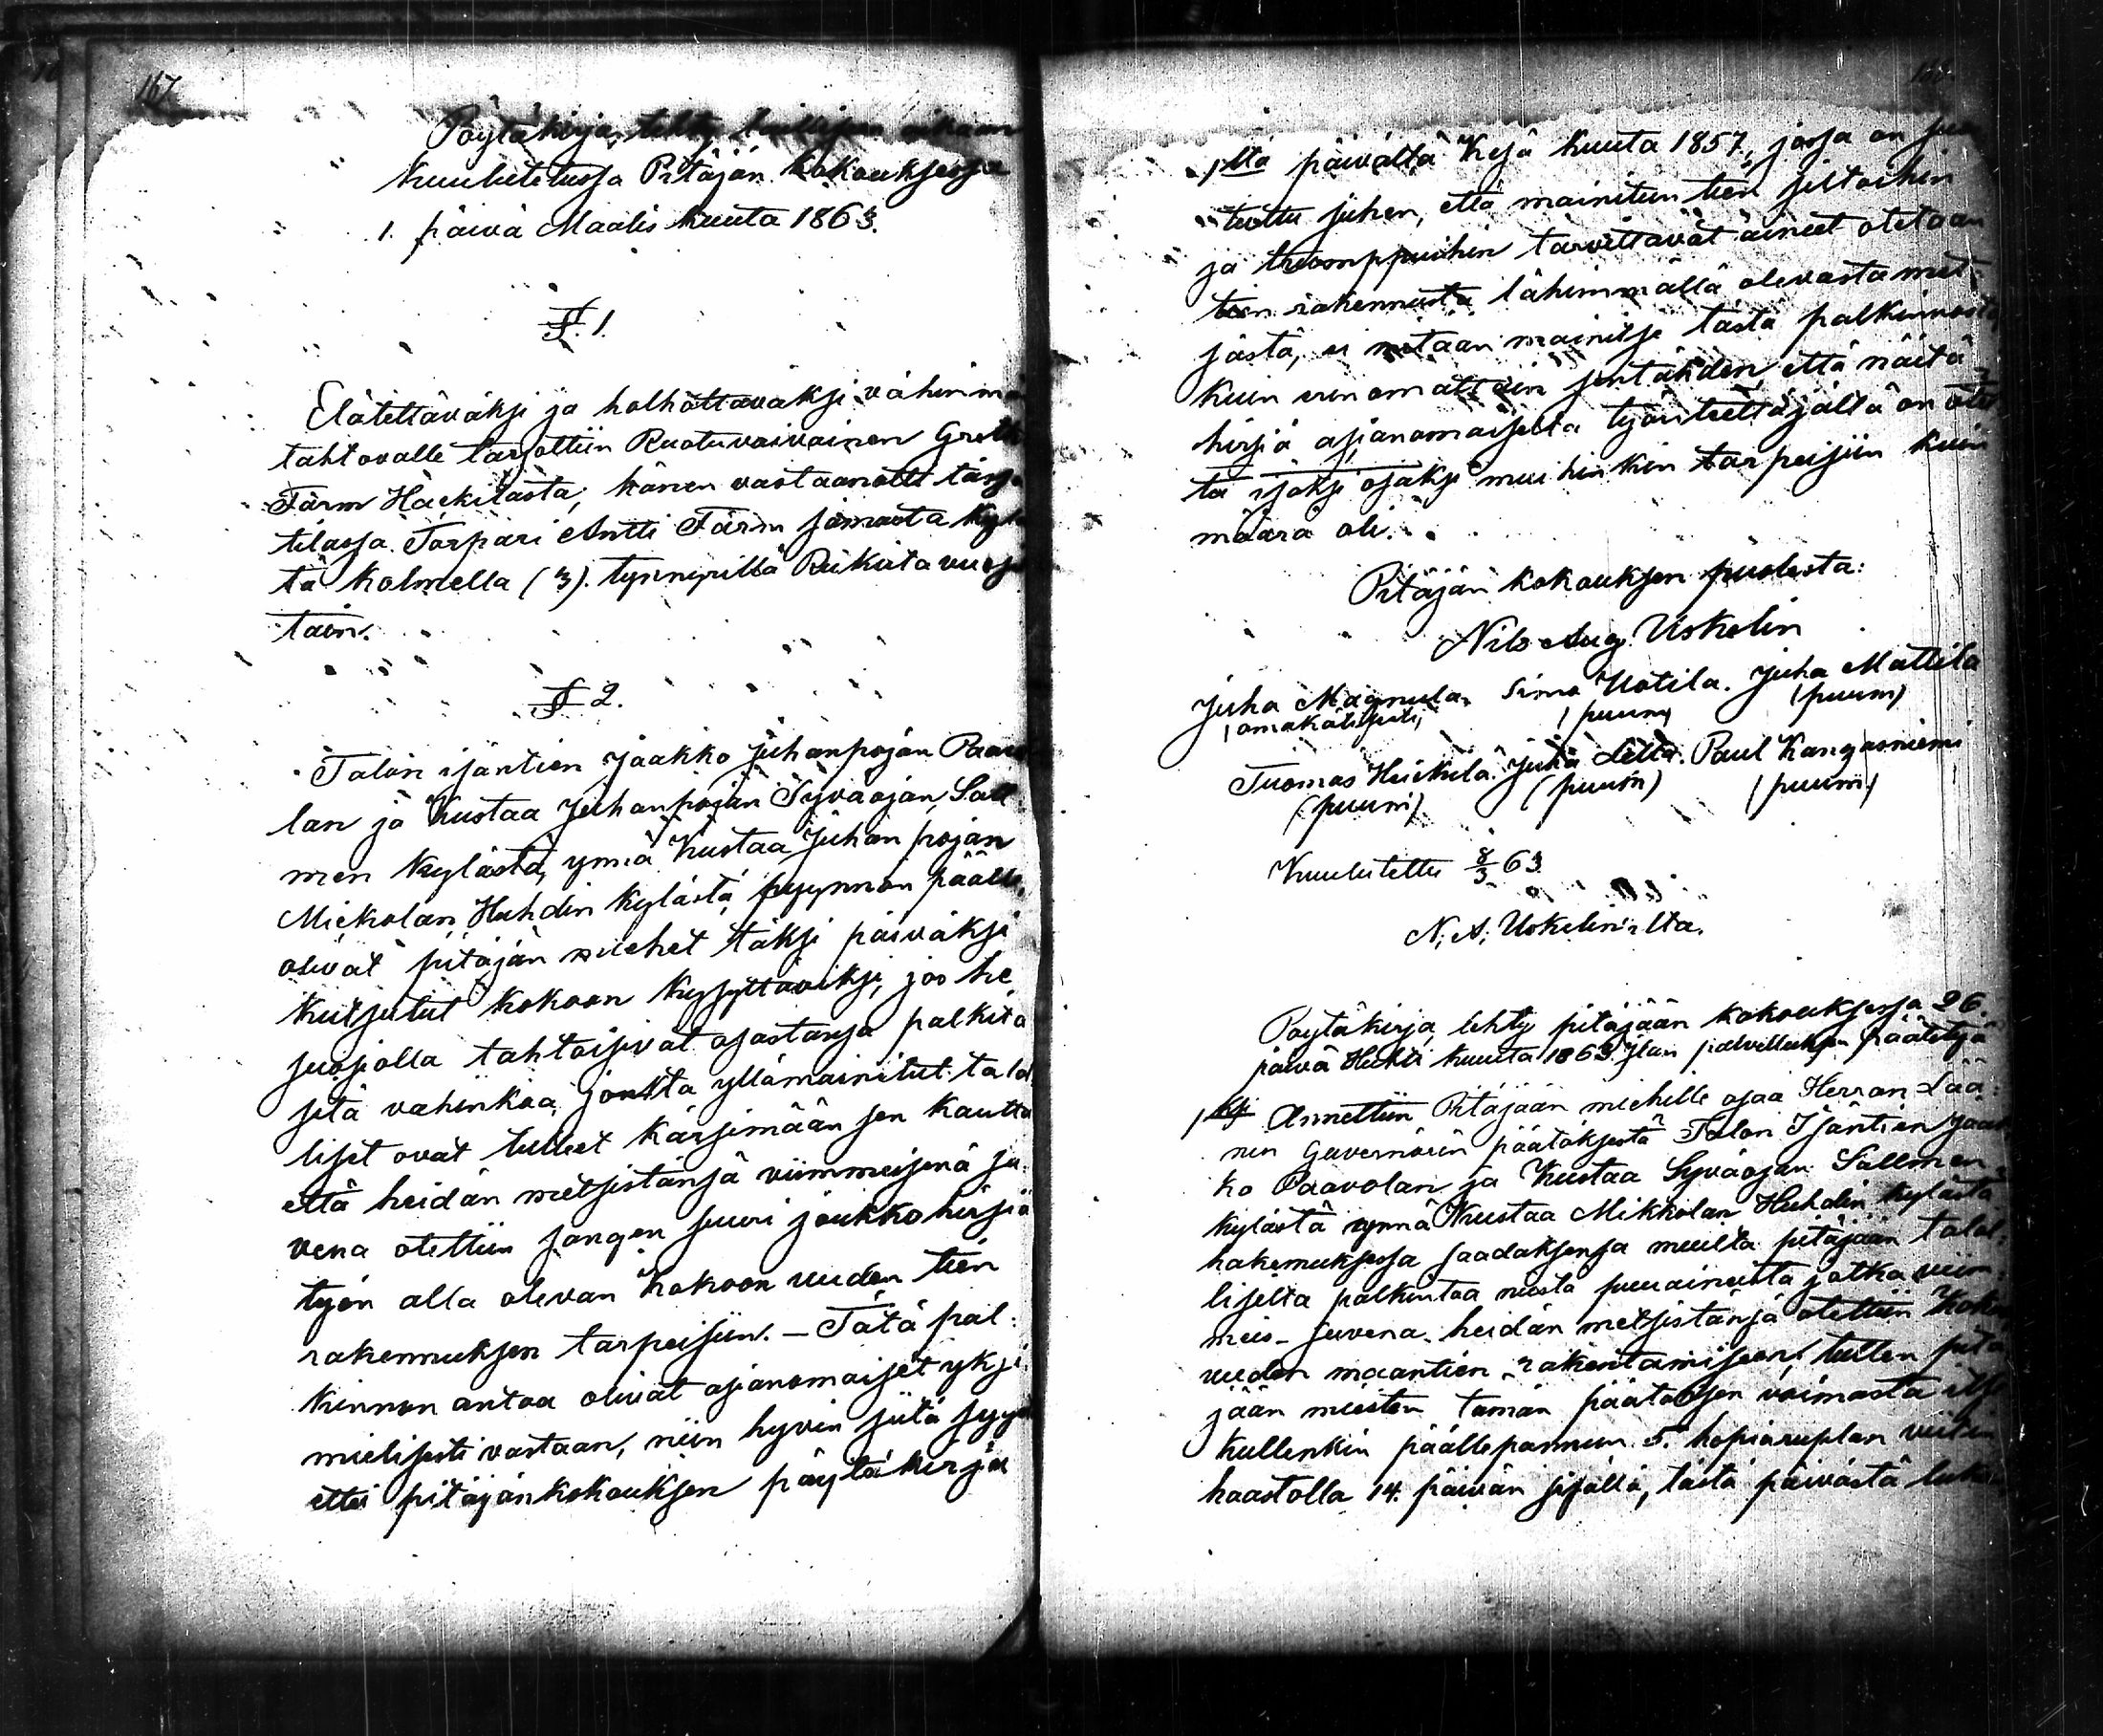 167.
Pöytäkirja, tehty
kuulutetussa Pitäjän kokouksessa
1. päivä Maalis kuuta 1863.
§ 1.
Elätettäväksi ja holhottavaksi vähimmä
tahtovalle tarjottiin Ruotuvaivainen Greta
Färm Häckilästä; hänen vastaanotti tässä
tilassa Torpari Antti Färm samasta kylä
tä kolmella (3). tynnyrillä Rukiita vuosi
täin.
§ 2.
Talon isäntien Jaakko Juhanpojan Paavo
lan ja Kustaa Juhanpojan Syväojan, Sall
men kylästä, ynnä Kustaa Juhan pojan
Mickolan, Huhdin kylästä pyynnön päälle,
olivat pitäjän miehet täksi päiväksi
kutsutut kokoon kysyttäviksi, jos he
suosiolla tahtoisivat osastansa palkita
sitä vahinkoa, jonkta yllämainitut talol
liset ovat tulleet kärsimään sen kautta
että heidän metsistänsä viimmeisenä su
vena otettiin sangen suuri joukko hirsiä
työn alla olevan Kokoon uuden tien
rakennuksen tarpeisiin. – Tätä pal:
kinnon antoa olivat asianomaiset yksi
mielisesti vastaan, niin hyvin siitä syys
ettei pitäjänkokouksen pöytäkirja
1ltä päivältä Kesä kuuta 1857, jossa on suo
tuttu siihen, että mainitun tien siltoihin
ja trumppuihin tarvittavat aineet otetaan
tien rakennusta lähimmällä olevasta met=
sästä, ei mitään mainitse tästä palkinnosta
kuin erinomattain sentähden, että näitä
hirsiä asianomaiselta työnteettäjältä on otet
ta isoksi osaksi muihinkin tarpeisiin kuin
määrä oli.
Pitäjän kokouksen puolesta:
Nils Aug. Uskelin
Juha Magnula, Simo Uotila. Juha Mattila
(omakätisesti) (puum) (puum)
Tuomas Heickilä. Juha Lellä. Paul Kangasniemi
(puum) (puum) (puum)
Kuulutettu 8/3 63.
N. A. Uskelin'ilta.
Pöytäkirja, tehty pitäjään kokouksessa 26.
päivä Huhti kuuta 1863. Jlan palvelluksen päätettyä
1 § Annettiin Pitäjään miehille osaa Herran Lää:
nin Guvernörin päätöksestä Talon Isäntien Jaak
ko Paavolan ja Kustaa Syväojan Sallmen
kylästä ynnä Kustaa Mikkolan Huhdin kylästä
hakemuksessa saadaksensa muilta pitäjään talol:
lisilta palkintoa niistä puuaineista jotka viim
meis- suvena heidän metsistänsä otettiin Koko
uuden maantien rakentamiseen; tullen pitä
jään miesten tämän päätöksen voimasta itse
kullenkin päällepannun 5. hopiaruplan viitin
haastolla 14. päivän sisällä, tästä päivästä lukien